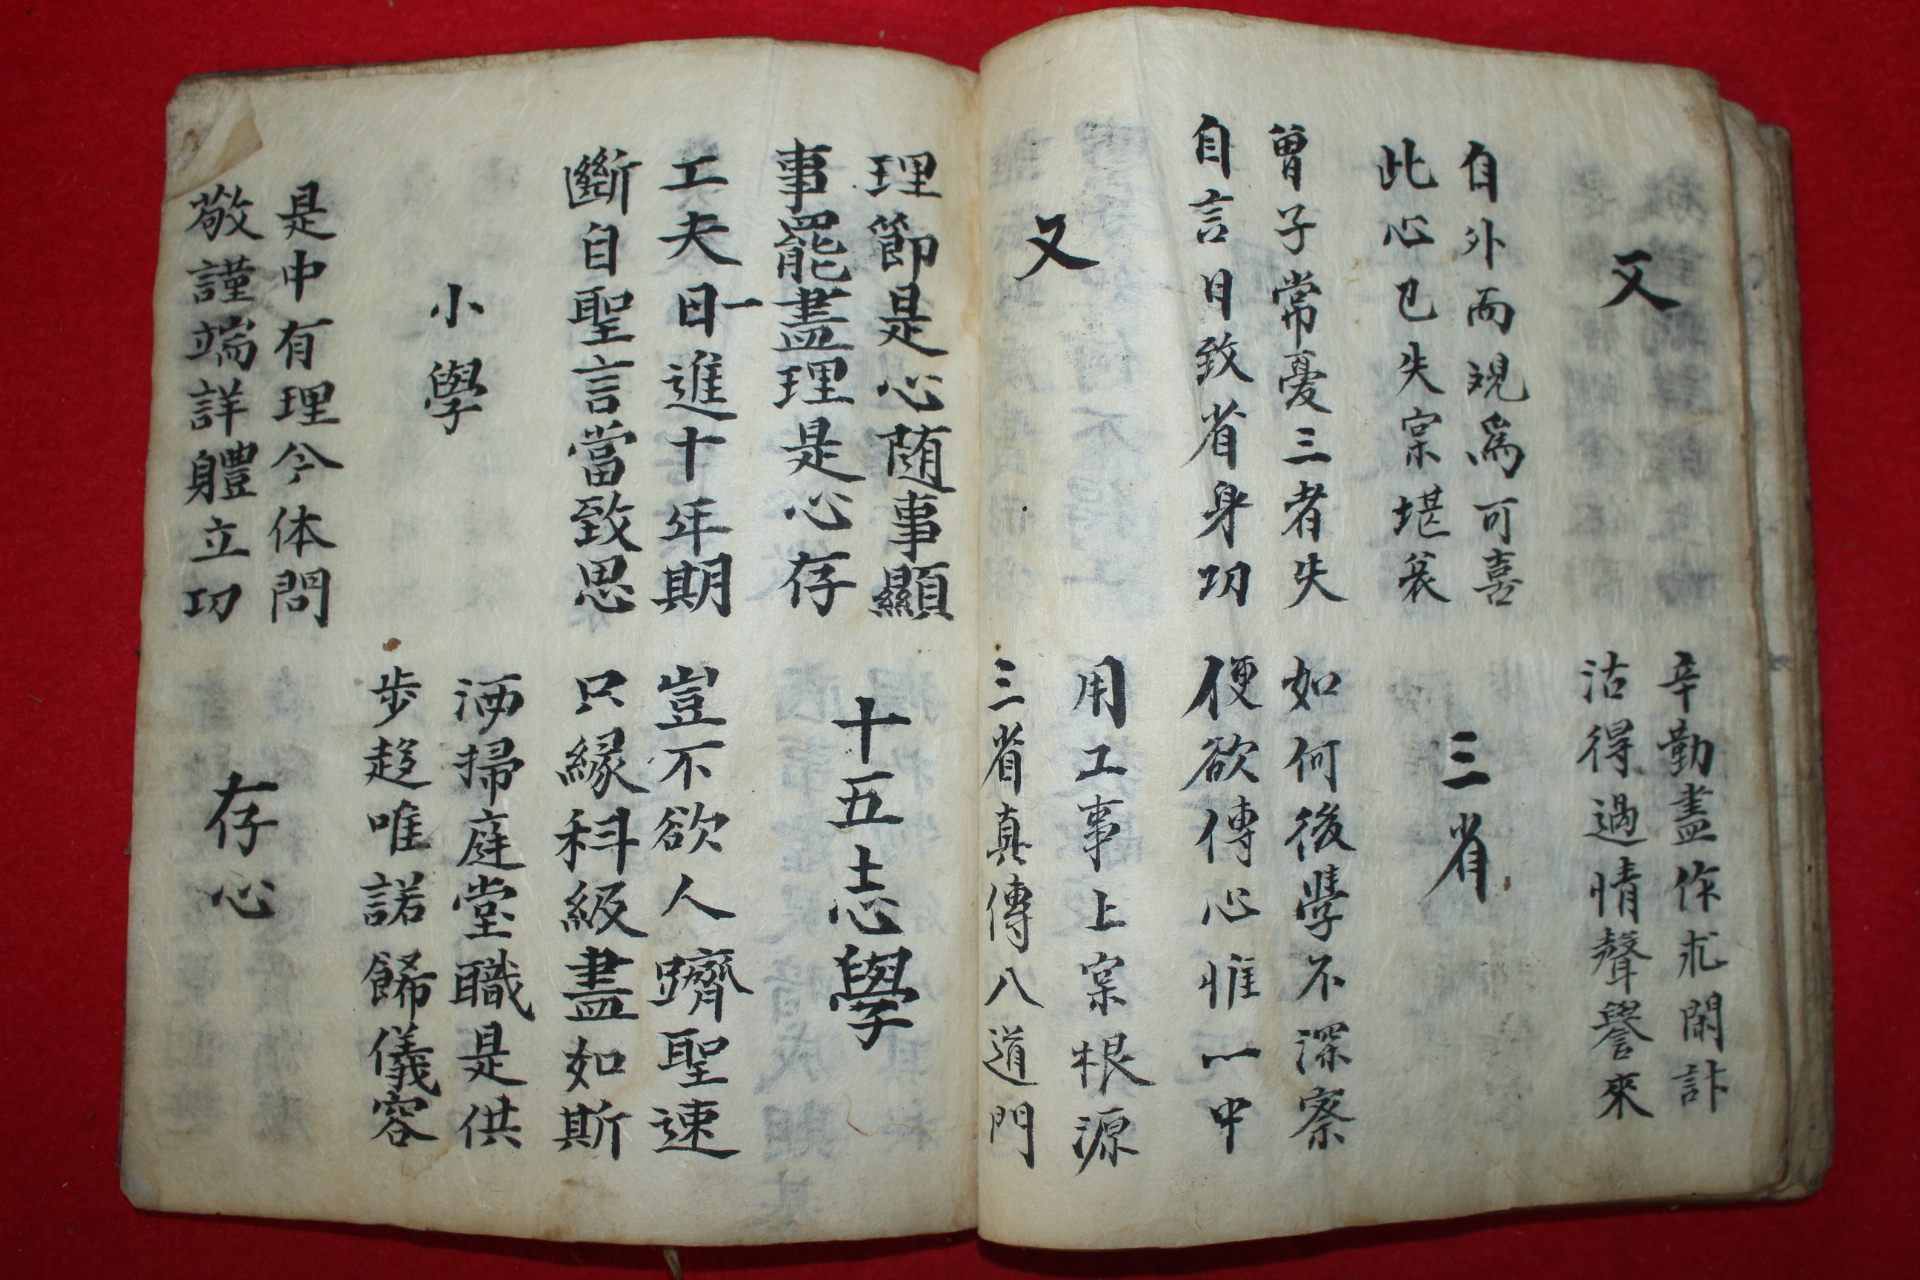 又
辛勤盡作求閑計
沽得過情聲譽來
自外而現爲可喜
此心已失寔堪哀
三省
曾子常憂三者失
自言日致省身功
如何後學不深察
便欲傳心惟一中
又
用工事上寔根源
三省真傳八道門
理節是心随事顯
事罷盡理是心存
十五志學
工夫日一進十年期
斷自聖言當致思
豈不欲人躋聖速
只緣科級盡如斯
小學
洒掃庭堂職是供
步趍唯諾餙儀容
是中有理今体問
敬謹端詳體立功
存心